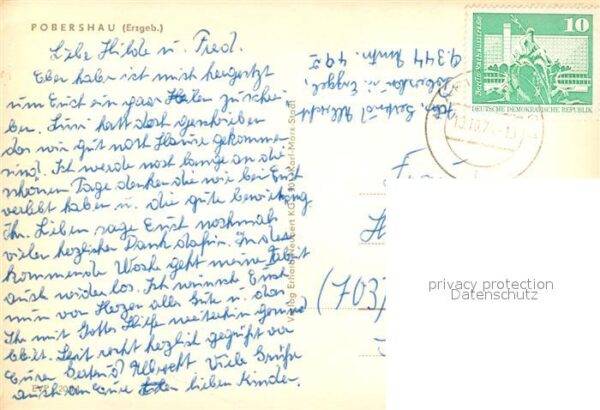 POBERSHAU (Erzgeb.)
Liebe Hilde u. Fred.
Eben habe ich mich hergesetzt
um Euch ein paar Zeilen zu schrei-
ben. Susi hatt doch geschrieben
das wir gut nach Hause gekommen
sind. Ich werde noch lange an die
schönen Tage denken die wir bei Euch
verlebt haben u. die gute bewirtung
Ihr Lieben sage Euch nochmals
vielen herzlichen Dank dafür. In dieser
kommende Woche geht meine Arbeit
auch wieder los. Ich wünsche Euch
nun von Herzen alles Gute u. das
Ihr mit Gottes Hilfe weiterhin gesund
bleibt. Seit recht herzlich gegrüßt von
Eurer Gertrud Albrecht Viele Grüße
auch an Eure lieben Kinder.
Gertrud Albrecht
9344
49
Verlag Erhard Neubert KG, Karl-Marx-Stadt
10
DEUTSCHE DEMOKRATISCHE REPUBLIK
Fa
H
(703)
privacy protection
Datenschutz